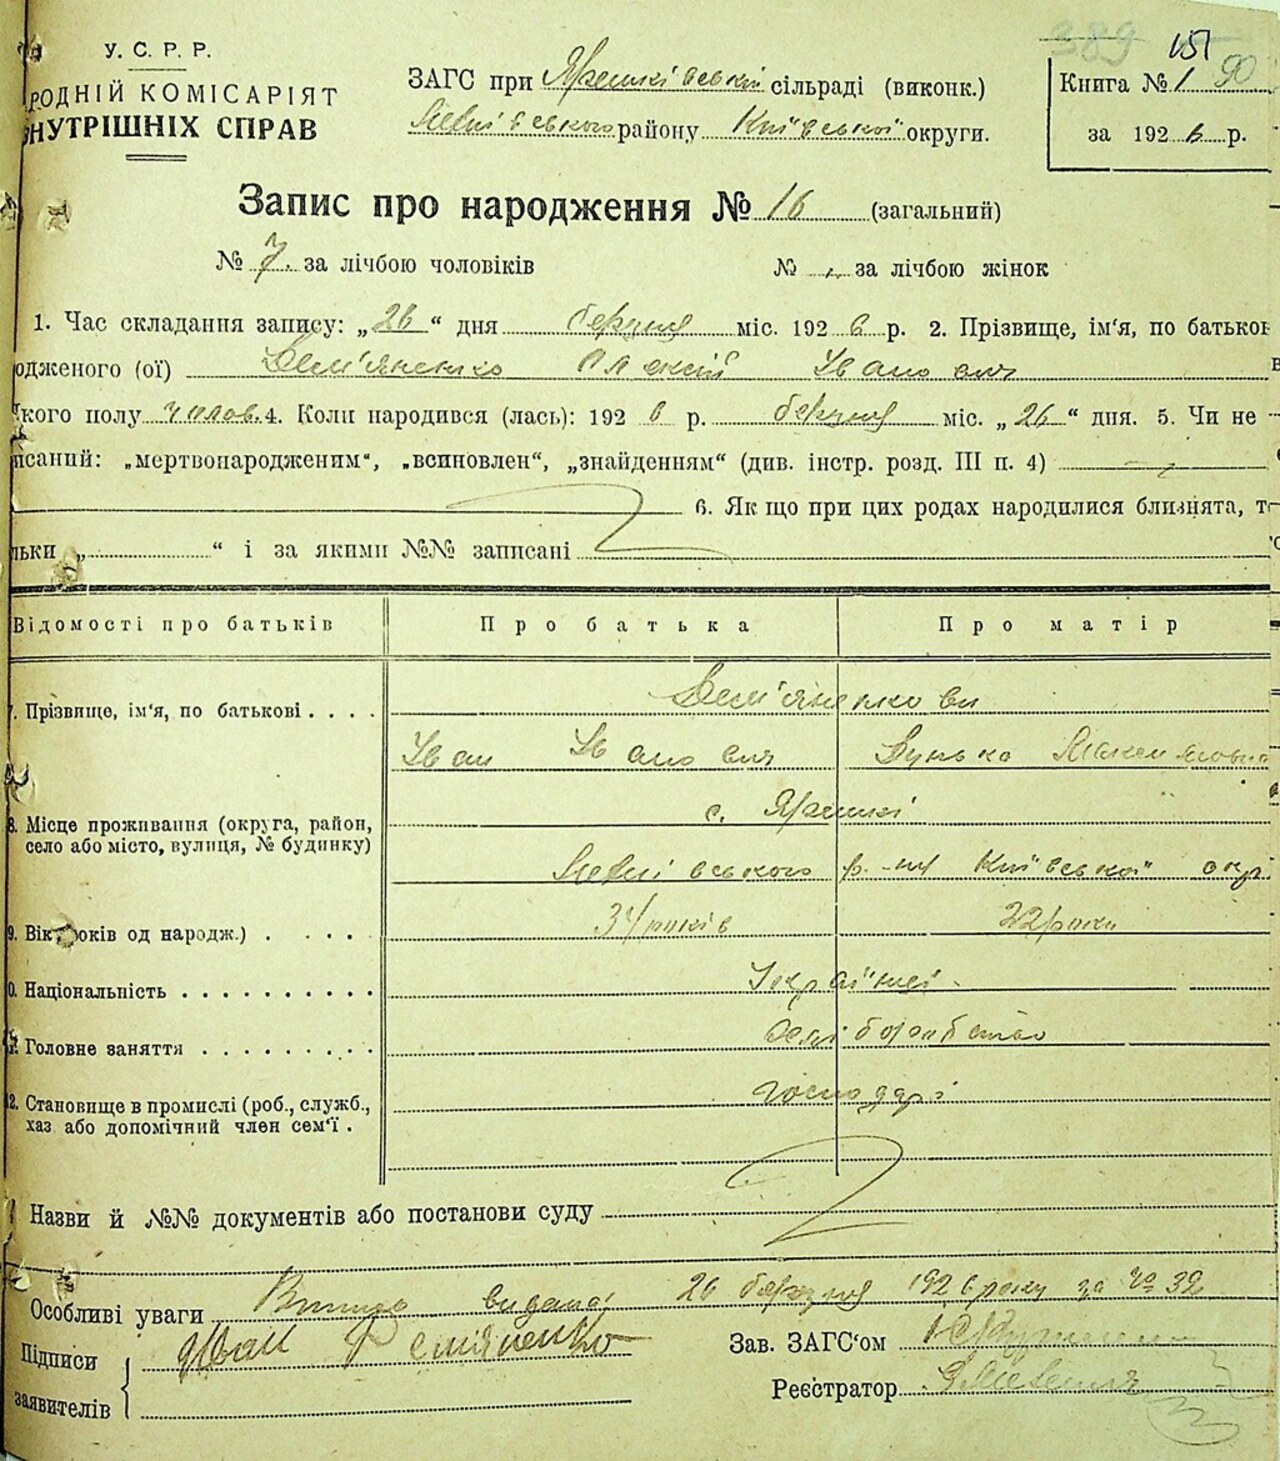 389 151
У. С. Р. Р.
РОДНІЙ КОМІСАРІЯТ
НУТРІШНІХ СПРАВ
ЗАГС при сільраді (виконк.)
району Київської округи.
Книга № 1 90
за 1926 р.
Запис про народження № 16 (загальний)
№ 7 за лічбою чоловіків № за лічбою жінок
1. Час складання запису: „26“ дня березня міс. 1926 р. 2. Прізвище, ім‘я, по батькові
одженого (ої) Дем'яненко Олексій Іванович
кого полу чолов. 4. Коли народився (лась): 1926 р. березня міс. „26“ дня. 5. Чи не
писаний: „мертвонародженим“, „всиновлен“, „знайденням“ (див. інстр. розд. III п. 4)
6. Як що при цих родах народилися близнята, т
льки „ “ і за якими №№ записані
Відомості про батьків Про батька Про матір
7. Прізвище, ім‘я, по батькові . . . . Дем'яненкови
Іван Іванович Дунька Максимовна
8. Місце проживання (округа, район, село або місто, вулиця, № будинку) с.
р-ну Київської окр.
9. Вік років од народж.) . . . . 34 років 22 роки
10. Національність . . . . . . . . . . Українці
11. Головне заняття . . . . . . . . . хліборобство
12. Становище в промислі (роб., служб., господарі
хаз або допомічний член сем‘ї .
Назви й №№ документів або постанови суду
Особливі уваги Випись видана 26 березня 1926 року за № 32
Підписи Іван Демяненко Зав. ЗАГС‘ом
заявителів Реєстратор